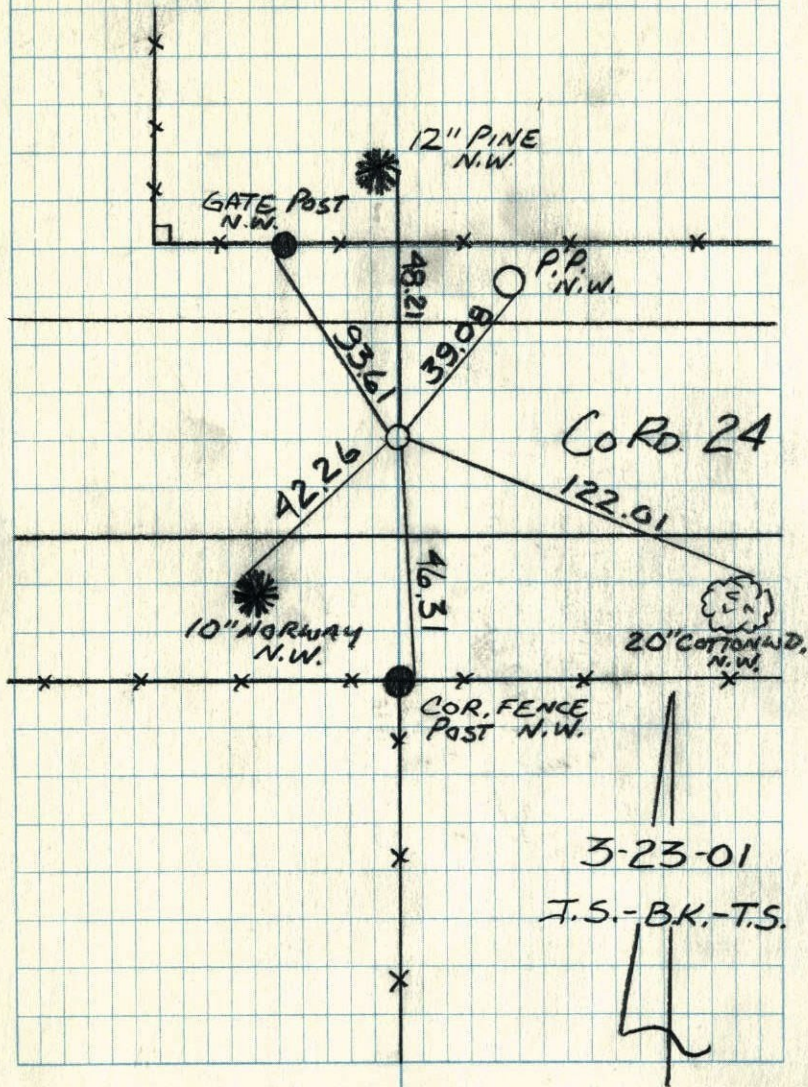 12" PINE
N.W.
GATE POST
N.W.
P.P.
N.W.
48.21
93.61
39.08
CO RD. 24
42.26
122.01
46.31
10" NORWAY
N.W.
20" COTTONWD.
N.W.
COR. FENCE
POST N.W.
3-23-01
J.S.-B.K.-T.S.